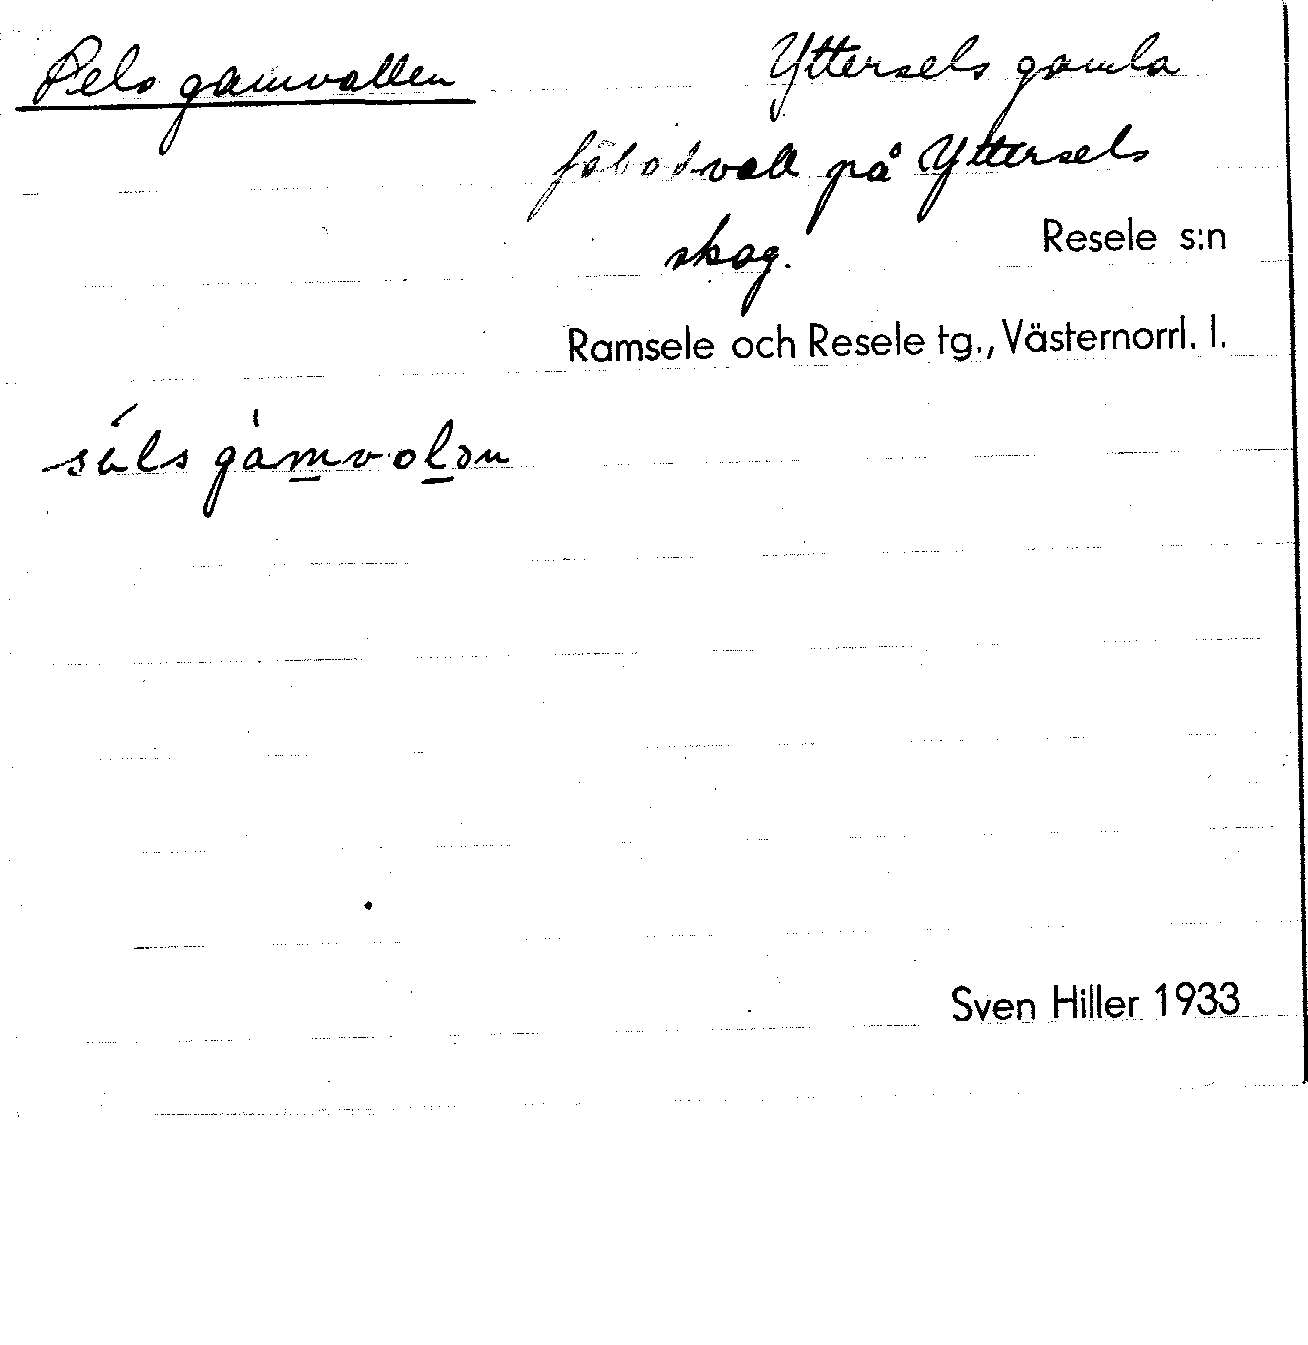 Sels gamvallen
Yttersels gamla
fäbodvall på Yttersels
skog.
Resele s:n
Ramsele och Resele tg., Västernorrl. l.
séls gàmvolən
Sven Hiller 1933